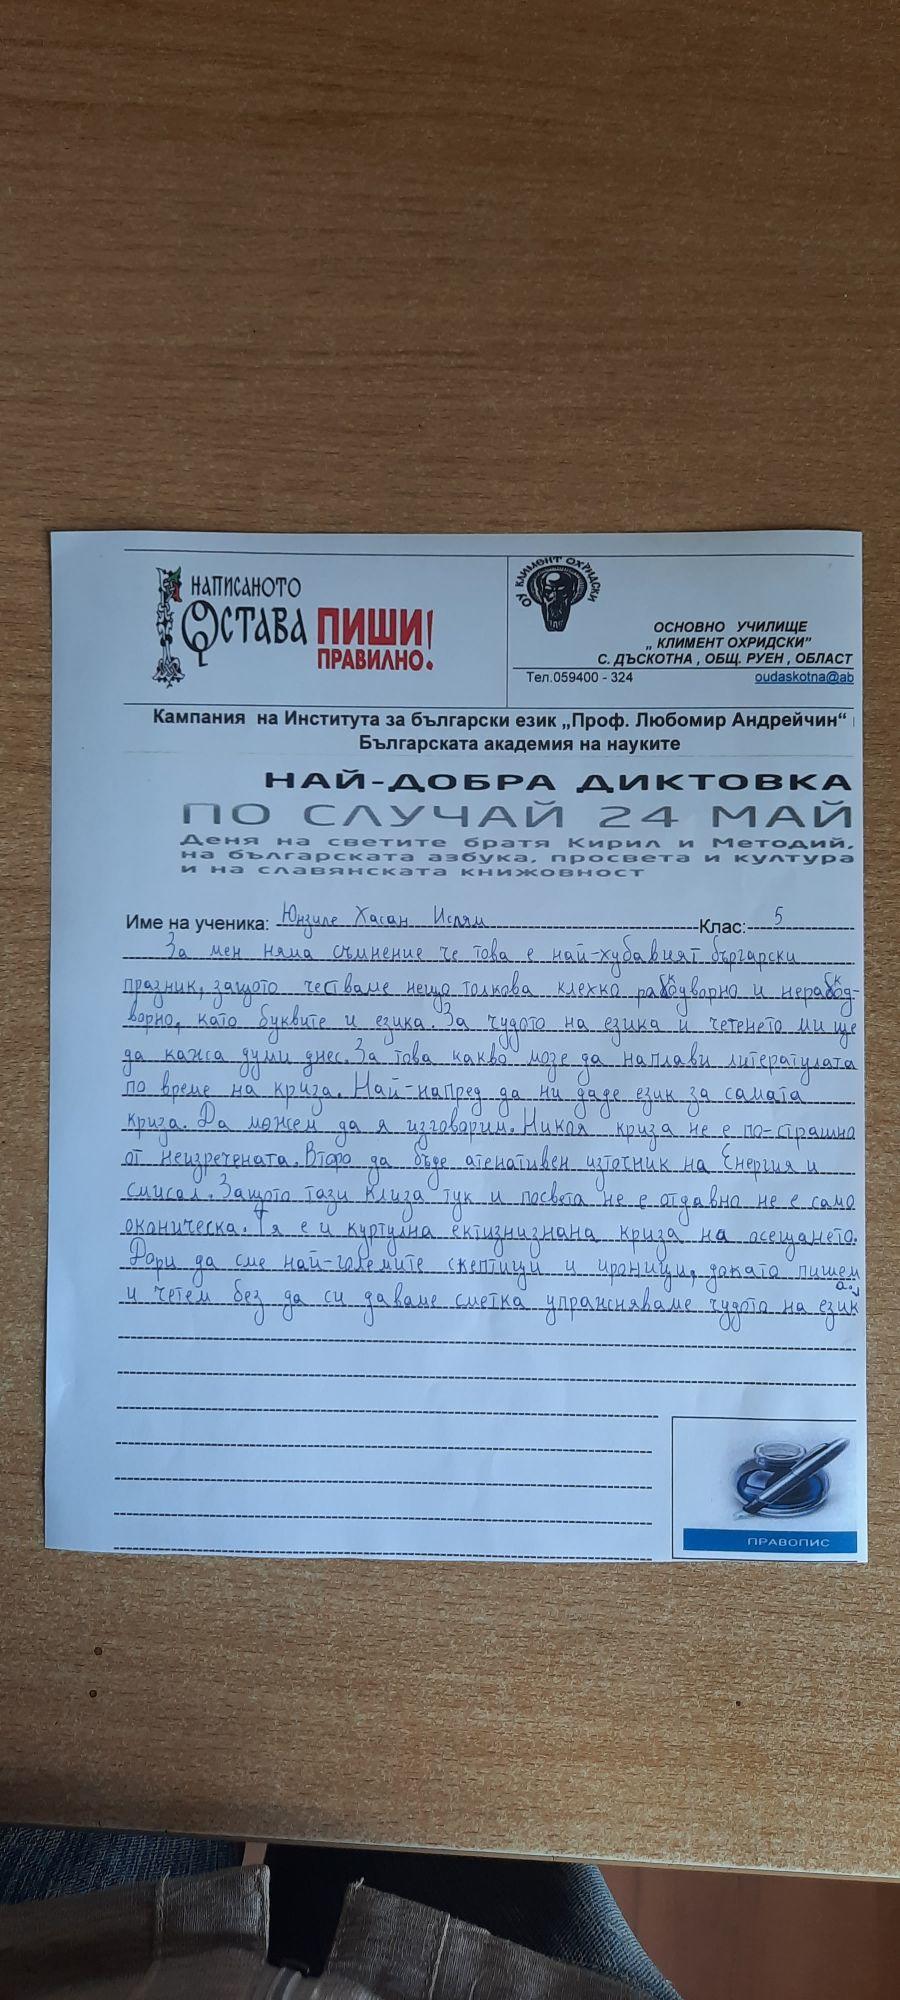 НАПИСАНОТО
ОСТАВА ПИШИ!
ПРАВИЛНО.
ОУ КЛИМЕНТ ОХРИДСКИ
ОСНОВНО УЧИЛИЩЕ
„ КЛИМЕНТ ОХРИДСКИ”
С. ДЪСКОТНА , ОБЩ. РУЕН , ОБЛАСТ
Тел.059400 - 324 oudaskotna@ab
Кампания на Института за български език „Проф. Любомир Андрейчин“
Българската академия на науките
НАЙ-ДОБРА ДИКТОВКА
ПО СЛУЧАЙ 24 МАЙ
Деня на светите братя Кирил и Методий,
на българската азбука, просвета и култура
и на славянската книжовност
Име на ученика: Юнзиле Хасан Ислям Клас: 5
За мен няма съмнение че това е най-хубавият бъргарски
празник, защото честваме нещо толкова клехко и
ворно, като буквите и езика. За чудото на езика и четенето ми ще
да кажса думи днес. За това какво мозе да наплави литератулата
по време на криза. Най-напред да ни даде език за самата
криза. Да можем да я изговорим. Никоя криза не е по-страшна
от неизречената. Второ да бъде атенативен източник на Енергия и
смисал. Защото тази клиза тук и посвета не е отдавна не е само
оканическа. Тя е и куртулна криза на осещането.
Дори да сме най-големите скептици и ироници, докато пишем
и четем без да си даваме сметка упраисняваме чудото на език
а.
ПРАВОПИС